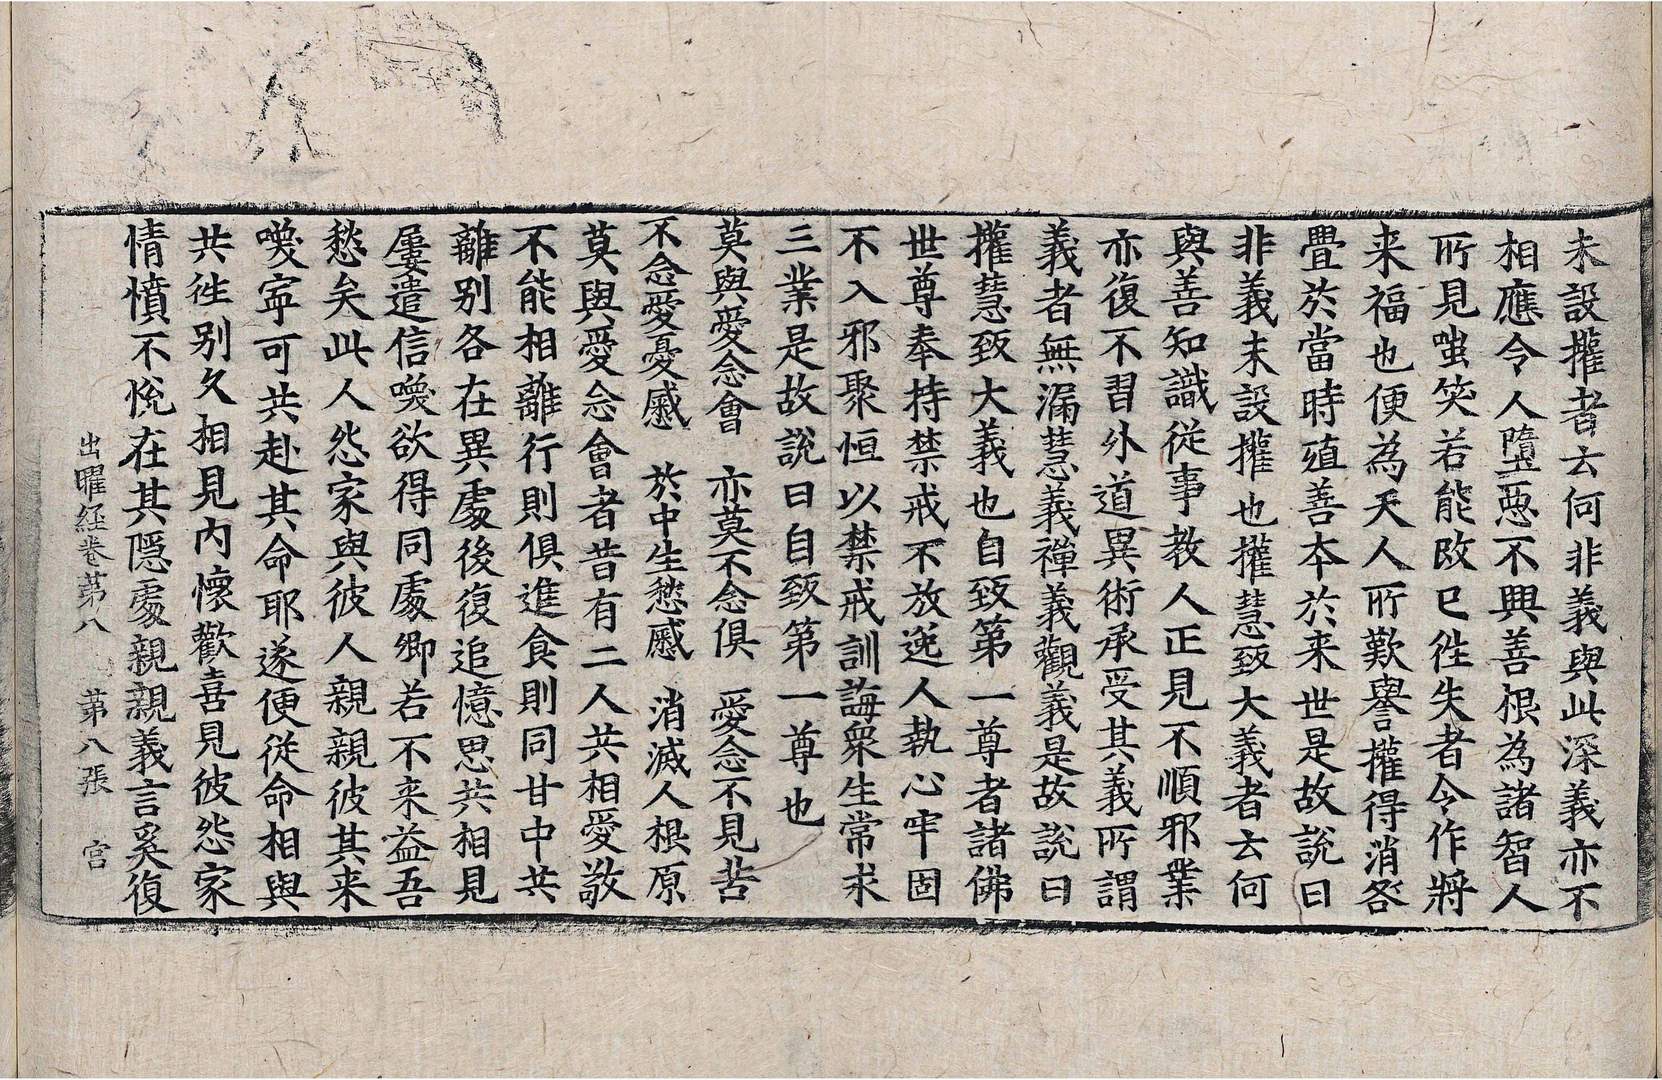 未設㩲者云何非義與此深義亦不
相應令人墮惡不興善根為諸智人
所見嗤笑若能改已徃失者令作將
来福也便為天人所歎譽㩲得消咎
疊於當時殖善本於来世是故說曰
非義末設㩲也㩲慧致大義者云何
與善知識從事教人正見不順邪業
亦復不習外道異術承受其義所謂
義者無漏慧義禪義觀義是故說曰
㩲慧致大義也自致第一尊者諸佛
世尊奉持禁戒不放逸人執心牢固
不入邪聚恒以禁戒訓誨衆生常求
三業是故說曰自致第一尊也
莫與愛念會　亦莫不念俱　愛念不見苦
不念愛憂慼　於中生愁慼　消滅人根原
莫與愛念會者昔有二人共相愛敬
不能相離行則俱進食則同甘中共
離别各在異處後復追憶思共相見
屢遣信喚欲得同處卿若不来益吾
愁矣此人怨家與彼人親親彼其来
喚寧可共赴其命耶遂便從命相與
共徃别久相見内懷歡喜見彼怨家
情憤不悅在其隱處親親義言奚復
出曜経卷第八　第八張　宫